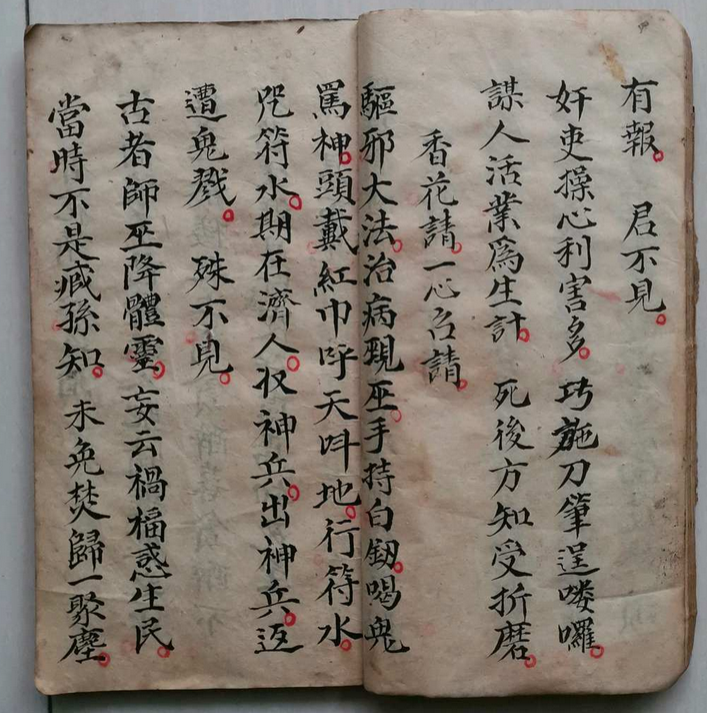 有報。 君不見。
奸吏操心利害多。巧施刀筆逞嘍囉。
謀人活業爲生計。死後方知受折磨。
香花請。一心召請。
驅邪大法。治病現巫。手持白劔。喝鬼
罵神。頭戴紅巾。呼天呌地。行符水。
咒符水。期在濟人。収神兵。出神兵。返
遭鬼戮。 殊不見。
古者師巫降體靈。妄云禍福惑生民。
當時不是臧孫知。未免焚歸一聚塵。